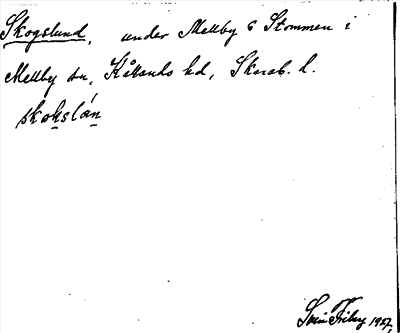 Skogslund, under Mellby 6 Stommen i
Mellby sn, Kållands hd, Skarab. l.
skokslán
1927.